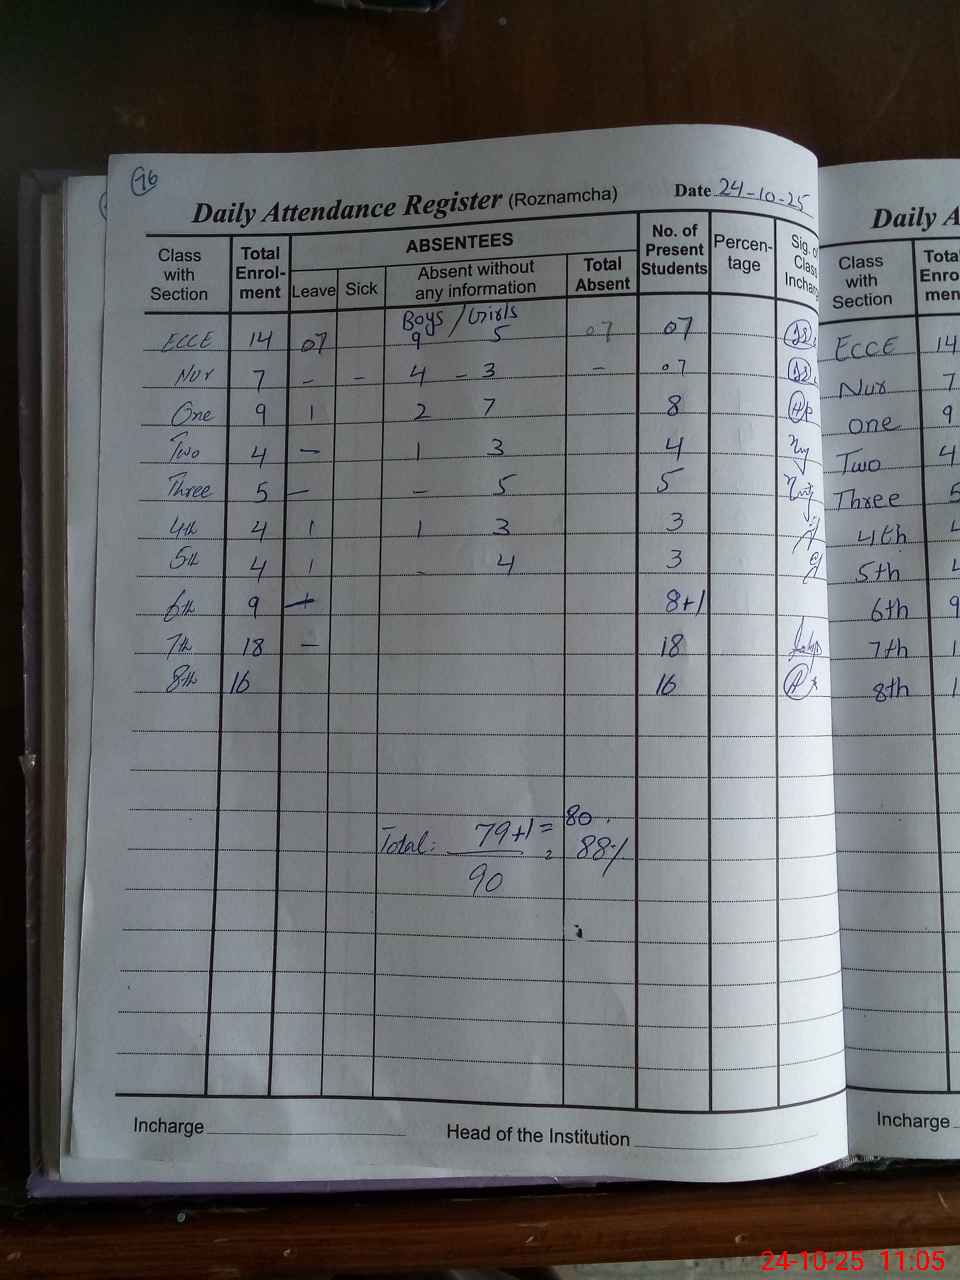 76
Daily Attendance Register (Roznamcha) Date 24-10-25
Class with Section Total Enrol-ment ABSENTEES Leave Sick Absent without any information Total Absent No. of Present Students Percen-tage Sig. of Class Incharge
Boys / Girls
ECCE 14 07 9 5 07 07
Nur 7 - - 4 - 3 - 07
One 9 1 2 7 8
Two 4 - 1 3 4
Three 5 - - 5 5
4th 4 1 1 3 3
5th 4 1 - 4 3
6th 9 8+1
7th 18 - 18
8th 16 16
Total: 79+1 = 80
90 = 88%
Incharge Head of the Institution
Daily A
Class with Section Total Enro men
ECCE 14
Nur 7
one 9
Two 4
Three 5
4th 4
5th 4
6th 9
7th 1
8th 1
Incharge
24-10-25 11:05